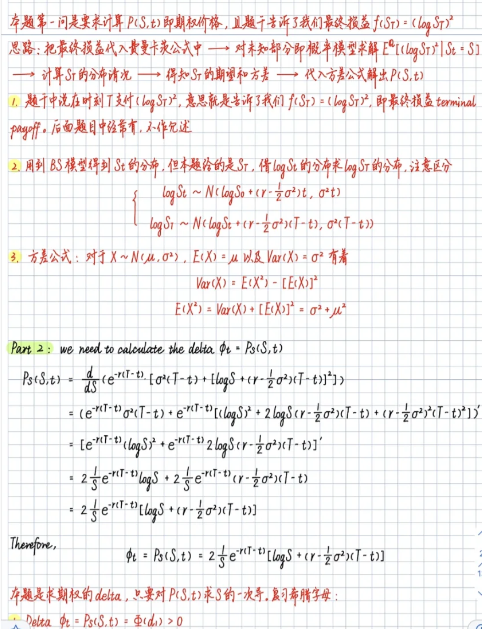 本题第一问是要求计算 P(S,t) 即期权价格，且题干告诉了我们最终损益 f(S_T) = (log S_T)²
思路：把最终损益代入费曼卡茨公式中 → 对未知部分即概率模型求解 E^Q[(log S_T)² | S_t = S]
→ 计算 S_T 的分布情况 → 得知 S_T 的期望和方差 → 代入方差公式解出 P(S,t)
1. 题干中说在时刻 T 支付 (log S_T)²，意思就是告诉了我们 f(S_T) = (log S_T)²，即最终损益 terminal
payoff。后面题目中经常有，不作冗述
2. 用到 BS 模型得到 S_t 的分布，但本题给的是 S_T，借 log S_t 的分布求 log S_T 的分布，注意区分
{ log S_t ~ N(log S_0 + (r - 1/2 σ²)t, σ²t)
log S_T ~ N(log S_t + (r - 1/2 σ²)(T-t), σ²(T-t))
3. 方差公式：对于 X ~ N(μ, σ²)，E(X) = μ 以及 Var(X) = σ² 有着
Var(X) = E(X²) - [E(X)]²
E(X²) = Var(X) + [E(X)]² = σ² + μ²
Part 2: we need to calculate the delta ϕ_t = P_S(S,t)
P_S(S,t) = d/dS (e^{-r(T-t)} [σ²(T-t) + [log S + (r - 1/2 σ²)(T-t)]²])
= (e^{-r(T-t)} σ²(T-t) + e^{-r(T-t)} [(log S)² + 2 log S (r - 1/2 σ²)(T-t) + (r - 1/2 σ²)²(T-t)²])'
= [e^{-r(T-t)} (log S)² + e^{-r(T-t)} 2 log S (r - 1/2 σ²)(T-t)]'
= 2 1/S e^{-r(T-t)} log S + 2 1/S e^{-r(T-t)} (r - 1/2 σ²)(T-t)
= 2 1/S e^{-r(T-t)} [log S + (r - 1/2 σ²)(T-t)]
Therefore,
ϕ_t = P_S(S,t) = 2 1/S e^{-r(T-t)} [log S + (r - 1/2 σ²)(T-t)]
本题是求期权的 delta，只要对 P(S,t) 求 S 的一次导。复习希腊字母：
1. Delta ϕ_t = P_S(S,t) = Φ(d₁) > 0